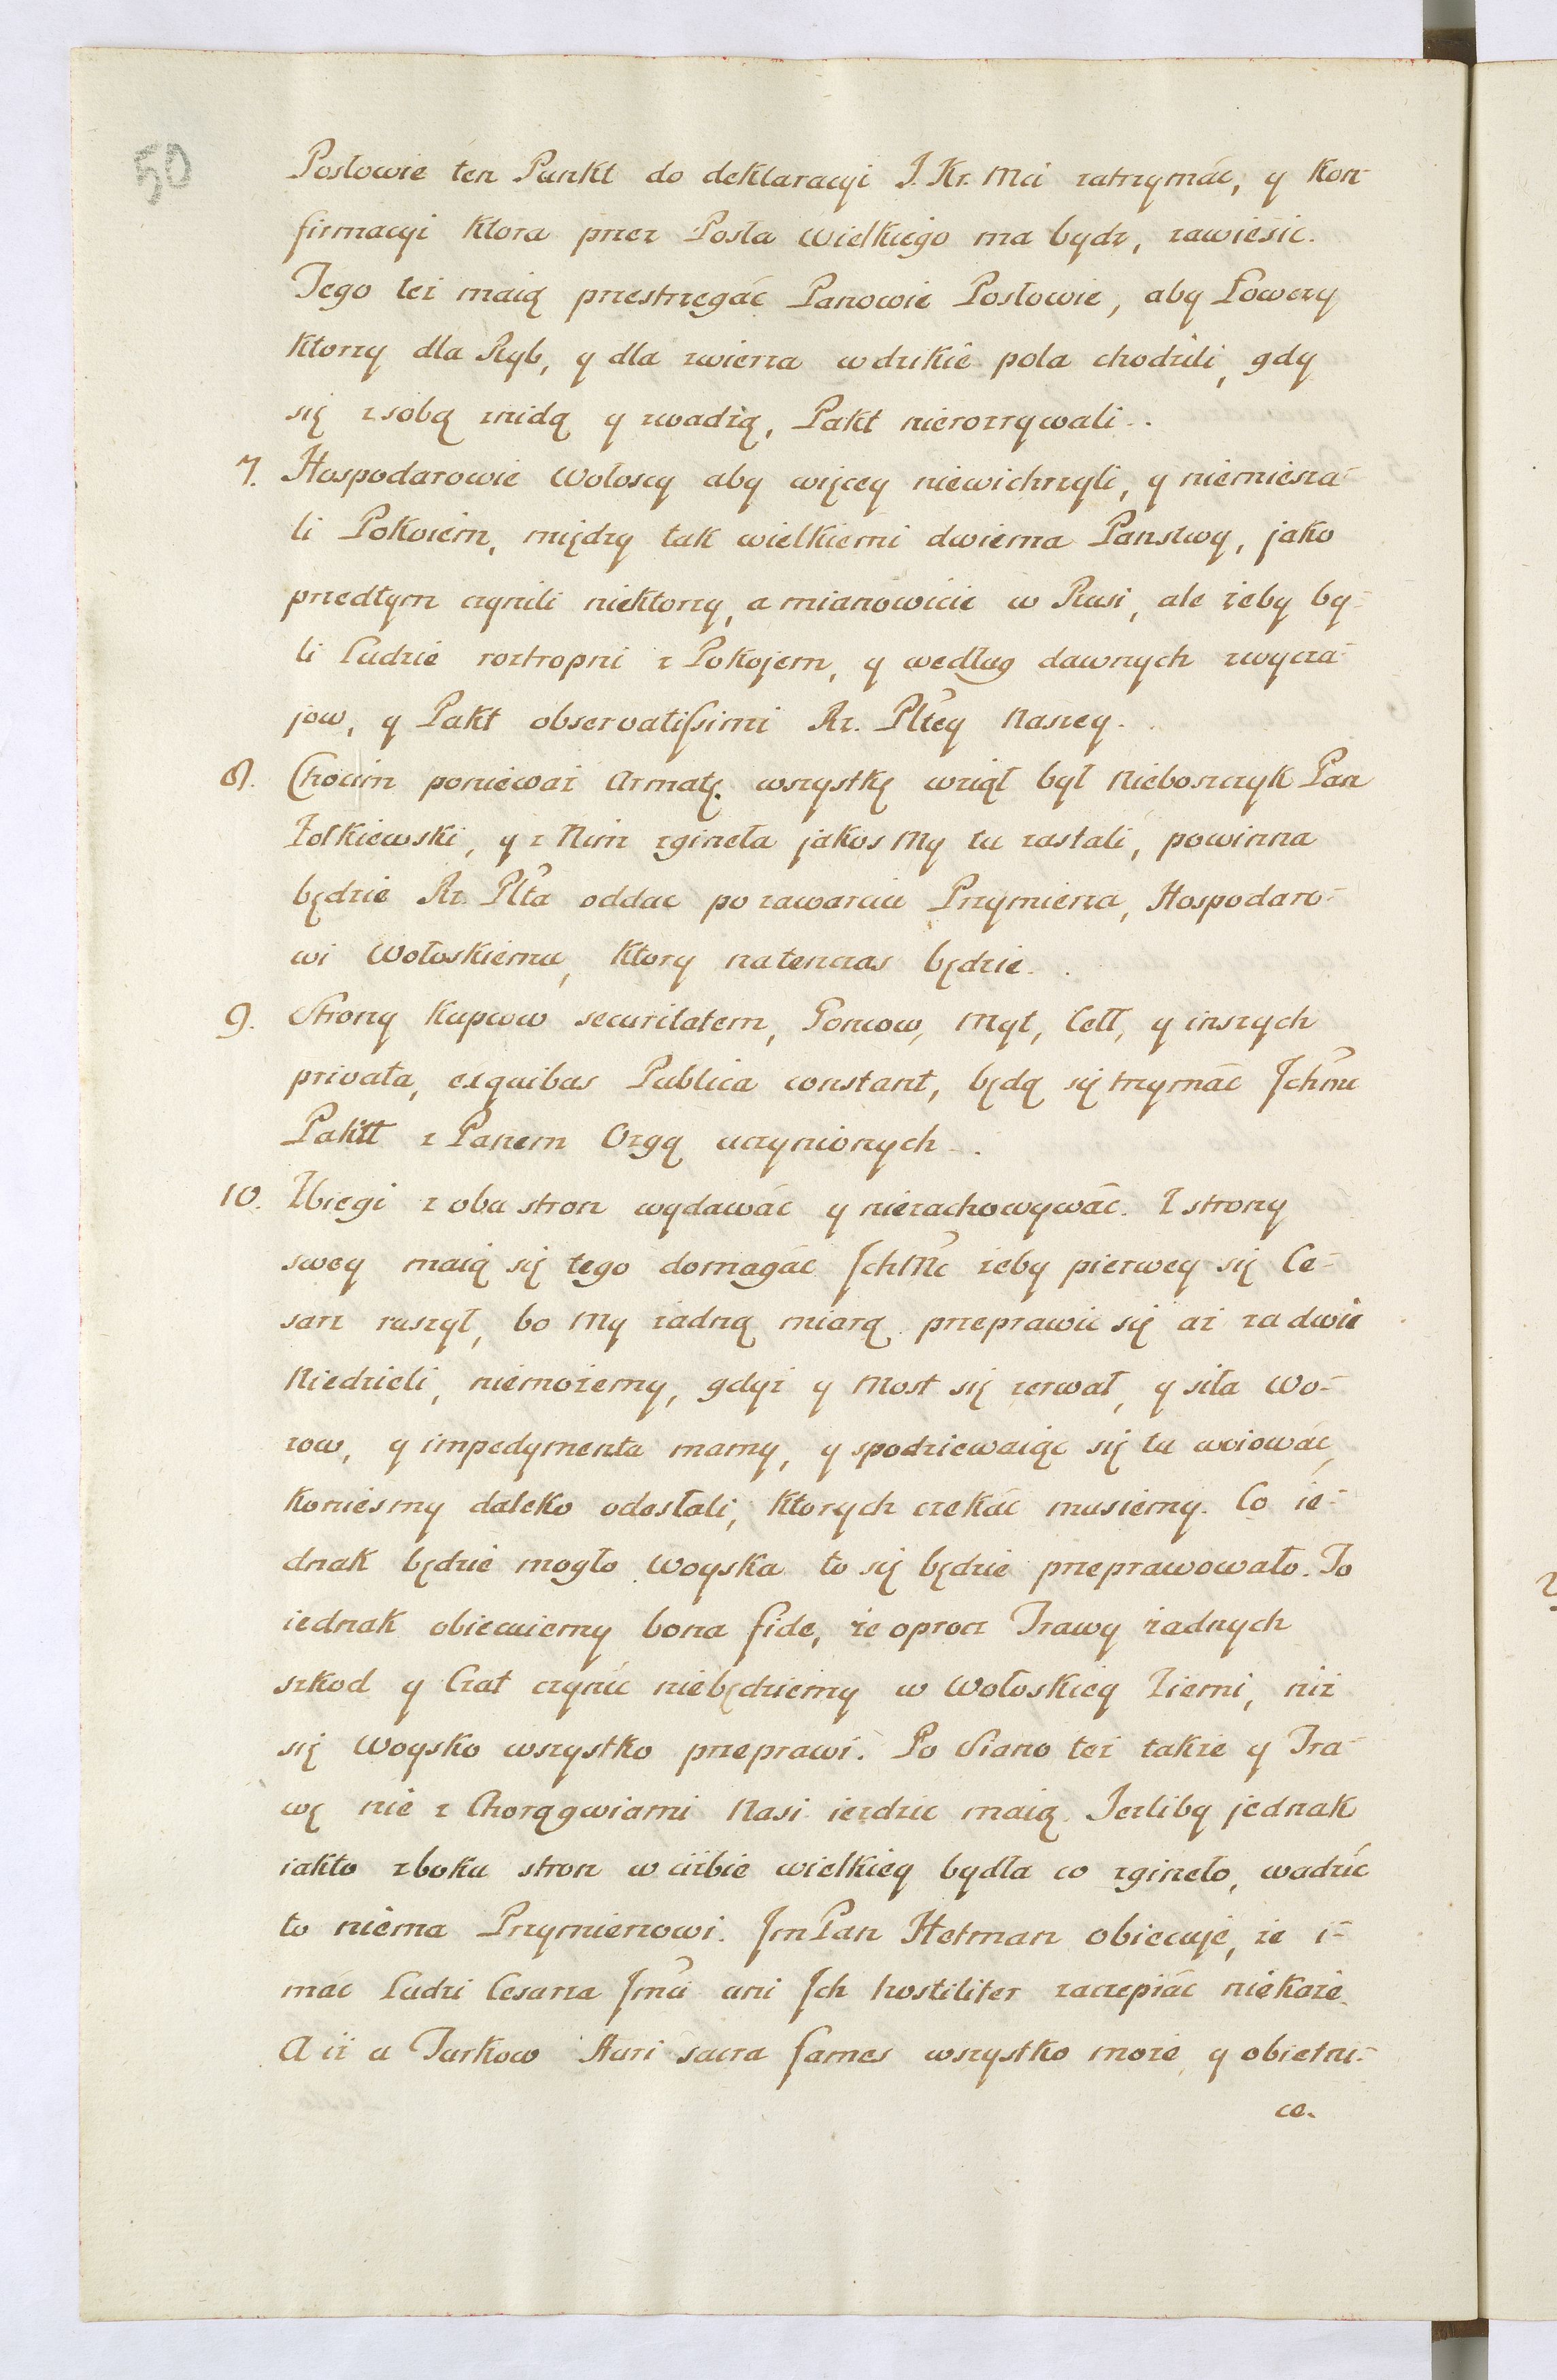 50
Posłowie ten Punkt do deklaracyi J. Kr. Mci zatrzymać, y kon-
firmacyi ktora przez Posła Wielkiego ma bydz, zawiesic.
Tego też maią przestrzegać Panowie Posłowie, aby Łowczy
ktorzy dla Ryb, y dla zwierza w dzikie pola chodzili, gdy
się z sobą znidą y zwadzą, Pakt nierozrywali.
7. Hospodarowie Wołoscy aby więcey niewichrzyli, y niemiesza-
li Pokoiem, między tak wielkiemi dwiema Panstwy, jako
przedtym czynili niektorzy, a mianowicie w Rusi, ale żeby by-
li Ludzie roztropni z Pokojem, y według dawnych zwycza-
jow, y Pakt observatissimi Rz. Pltey Naszey.
8. Chocim ponieważ Armatę wszystkę wziął był Nieboszczyk Pan
Żołkiewski, y z Nim zgineła jakos My tu zastali, powinna
będzie Rz. Plta oddac po zawarciu Przymierza, Hospodaro-
wi Wołoskiemu, ktory natenczas będzie.
9. Strony Kupcow securitatem, Goncow, Myt, Cell, y inszych
privata, ex quibus Publica constant, będą się trzymać Ichmc
Paktt z Panem Ozgą uczynionych.
10. Zbiegi z obu stron wydawać y niezachowywać. Z strony
swey maią się tego domagać IchMc żeby pierwey się Ce-
sarz ruszył, bo My żadną miarą przeprawic się aż za dwie
Niedzieli, niemożemy, gdyż y Most się zerwał, y siła Wo-
zow, y impedymenta mamy, y spodziewaiąc się tu woiować,
koniesmy daleko odesłali, ktorych czekać musiemy. Co ie-
dnak będzie mogło Woyska to się będzie przeprawowało. To
iednak obiecuiemy bona fide, że oprocz Trawy żadnych
szkod y Czat czynić niebędziemy w Wołoskiey Ziemi, niż
się Woysko wszystko przeprawi. Po Siano też także y Tra-
wę nie z Chorągwiami Nasi iezdzic maią. Jezliby jednak
iakto z boku stron w ciżbie wielkiey bydła co zgineło, wadzić
to niema Przymierzowi. Jm Pan Hetman obiecuje, że i-
mać Ludzi Cesarza Jmci ani Ich hostiliter zaczepiać niekaże.
A iż u Turkow Auri sacra fames wszystko może, y obietni-
ce.